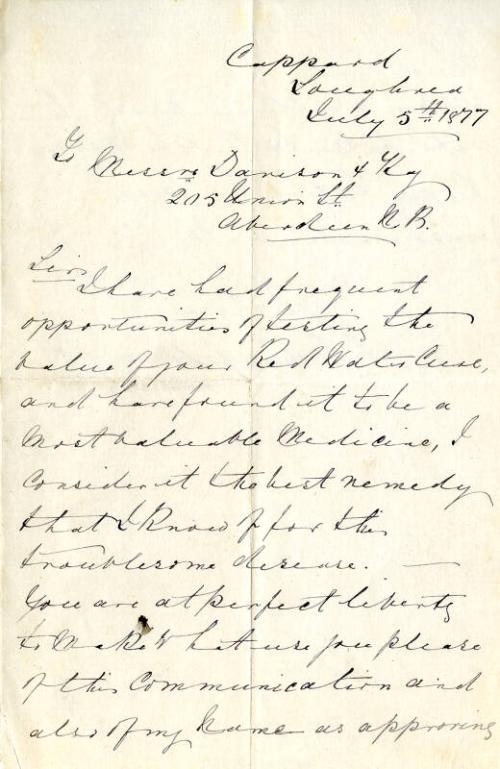 Cappard
Loughrea
July 5th 1877
To
Messrs Davison & Kay
205 Union St.
Aberdeen N.B.
Sirs
I have had frequent
opportunities of testing the
value of your Red Water Cure,
and have found it to be a
most valuable Medicine, I
Consider it the best remedy
that I Know of for this
troublesome disease. —
You are at perfect liberty
to Make What use you please
of this Communication and
also of my Name as approving